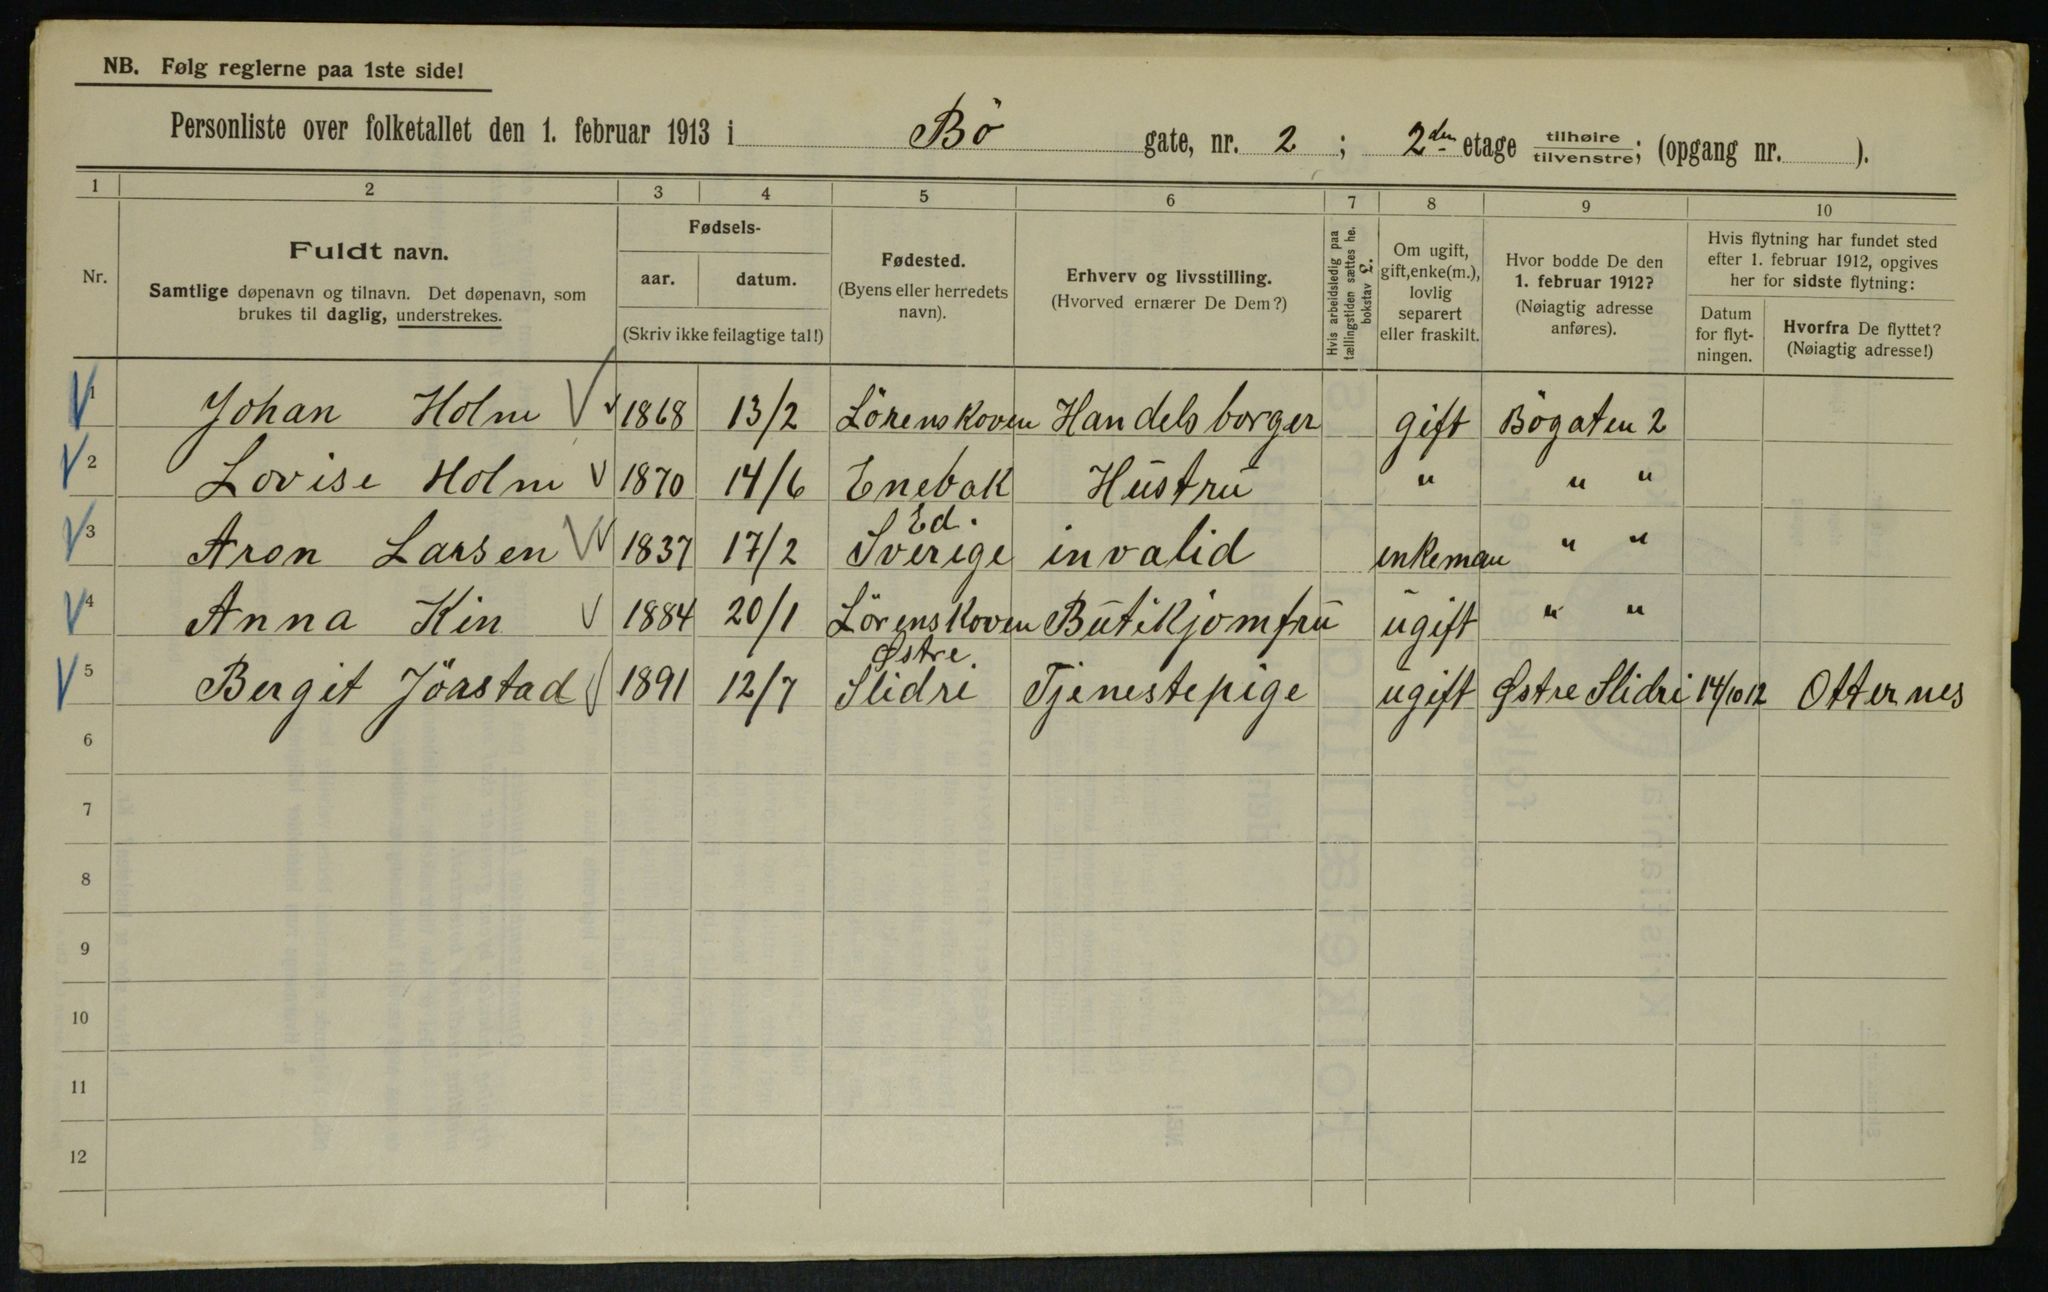 NB. Følg reglerne paa 1ste side!
Personliste over folketallet den 1. februar 1913 i Bö gate, nr. 2 ; 2den etage tilhøire/tilvenstre; (opgang nr. ).
1 2 3 4 5 6 7 8 9 10
Nr.
Fuldt navn.
Samtlige døpenavn og tilnavn. Det døpenavn, som
brukes til daglig, understrekes.
Fødsels-
aar. datum.
(Skriv ikke feilagtige tal!)
Fødested.
(Byens eller herredets
navn).
Erhverv og livsstilling.
(Hvorved ernærer De Dem?)
Hvis arbeidsledig paa
tællingstiden sættes he.
bokstav L.
Om ugift,
gift, enke(m.),
lovlig
separert
eller fraskilt.
Hvor bodde De den
1. februar 1912?
(Nøiagtig adresse
anføres).
Hvis flytning har fundet sted
efter 1. februar 1912, opgives
her for sidste flytning:
Datum
for flyt-
ningen.
Hvorfra De flyttet?
(Nøiagtig adresse!)
1 Johan Holm 1868 13/2 Lörenskoven Handelsborger gift Bögaten 2
2 Lovise Holm 1870 14/6 Enebak Hustru " " "
3 Aron Larsen 1837 17/2 Ed. Sverige invalid enkeman " "
4 Anna Kin 1884 20/1 Lörenskoven Butikjomfru ugift " "
5 Bergit Jörstad 1891 12/7 Østre Slidri Tjenestepige ugift Østre Slidri 14/10 12 Otternes
6
7
8
9
10
11
12